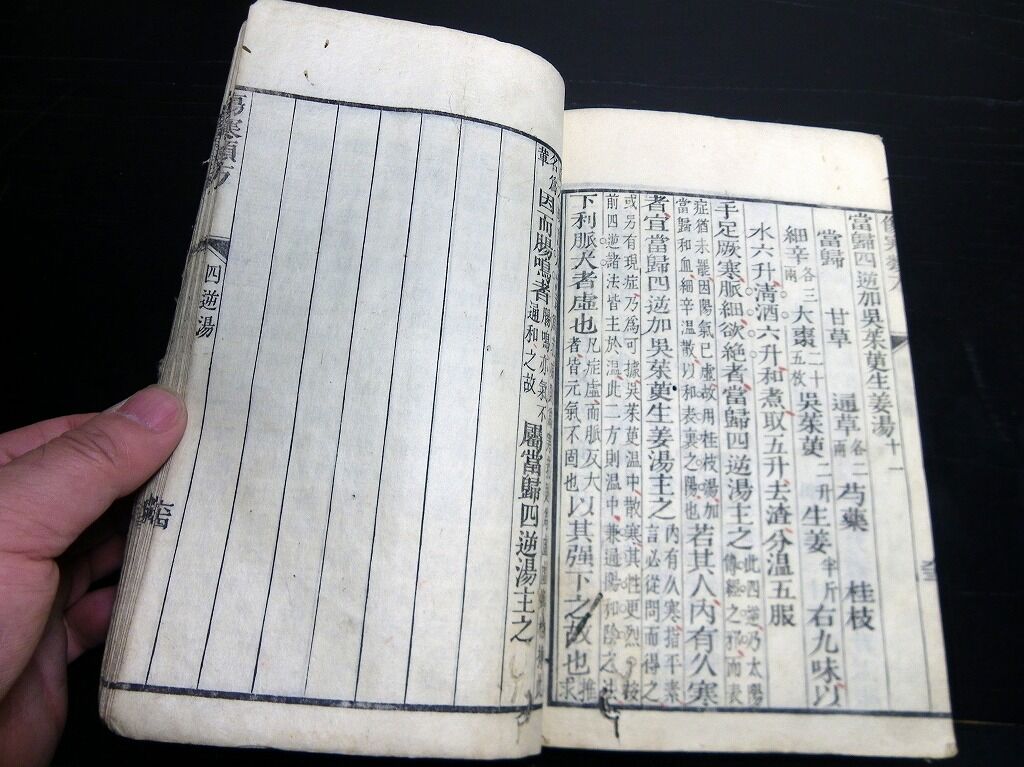 當歸四逆加吳茱萸生姜湯十一
當歸 甘草 通草各二兩 芍藥 桂枝
細辛各三兩 大棗二十五枚 吳茱萸二升 生姜半斤 右九味以
水六升清酒六升和煮取五升去渣分溫五服
手足厥寒脈細欲絕者當歸四逆湯主之此四逆乃太陽傳經之邪而表
症猶未罷因陽氣已虛故用桂枝湯加當歸和血細辛溫散以和表裏之陽也若其人內有久寒
者宜當歸四逆加吳茱萸生姜湯主之內有久寒指平素言必從問而得之
或另有現症乃可據吳茱萸溫中散寒其性更烈
前四逆諸法皆主於溫此二方則溫中兼通陽和陰之法
下利脈大者虛也凡症虛而脈反大者皆元氣不固也以其强下之故也推求
因而腸鳴者腸鳴亦氣不通和之故屬當歸四逆湯主之
傷寒類方
四逆湯